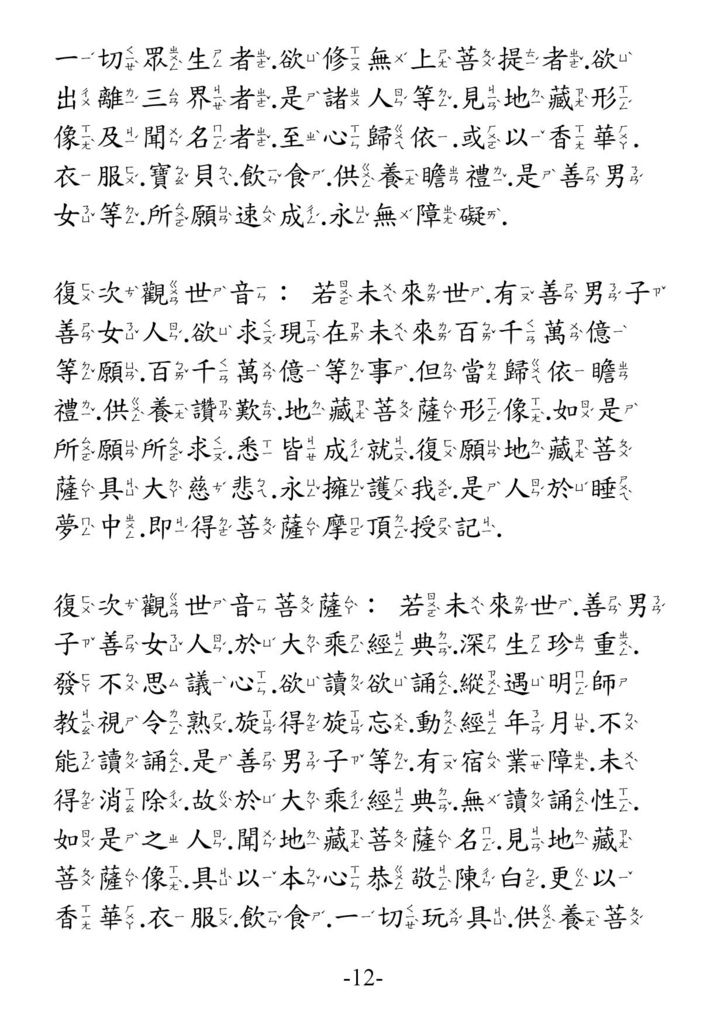 一切眾生者.欲修無上菩提者.欲
出離三界者.是諸人等.見地藏形
像及聞名者.至心歸依.或以香華.
衣服.寶貝.飲食.供養瞻禮.是善男
女等.所願速成.永無障礙.
復次觀世音：若未來世.有善男子
善女人.欲求現在未來百千萬億
等願.百千萬億等事.但當歸依瞻
禮.供養讚歎.地藏菩薩形像.如是
所願所求.悉皆成就.復願地藏菩
薩具大慈悲.永擁護我.是人於睡
夢中.即得菩薩摩頂授記.
復次觀世音菩薩：若未來世.善男
子善女人.於大乘經典.深生珍重.
發不思議心.欲讀欲誦.縱遇明師
教視令熟.旋得旋忘.動經年月.不
能讀誦.是善男子等.有宿業障.未
得消除.故於大乘經典.無讀誦性.
如是之人.聞地藏菩薩名.見地藏
菩薩像.具以本心恭敬陳白.更以
香華.衣服.飲食.一切玩具.供養菩
-12-